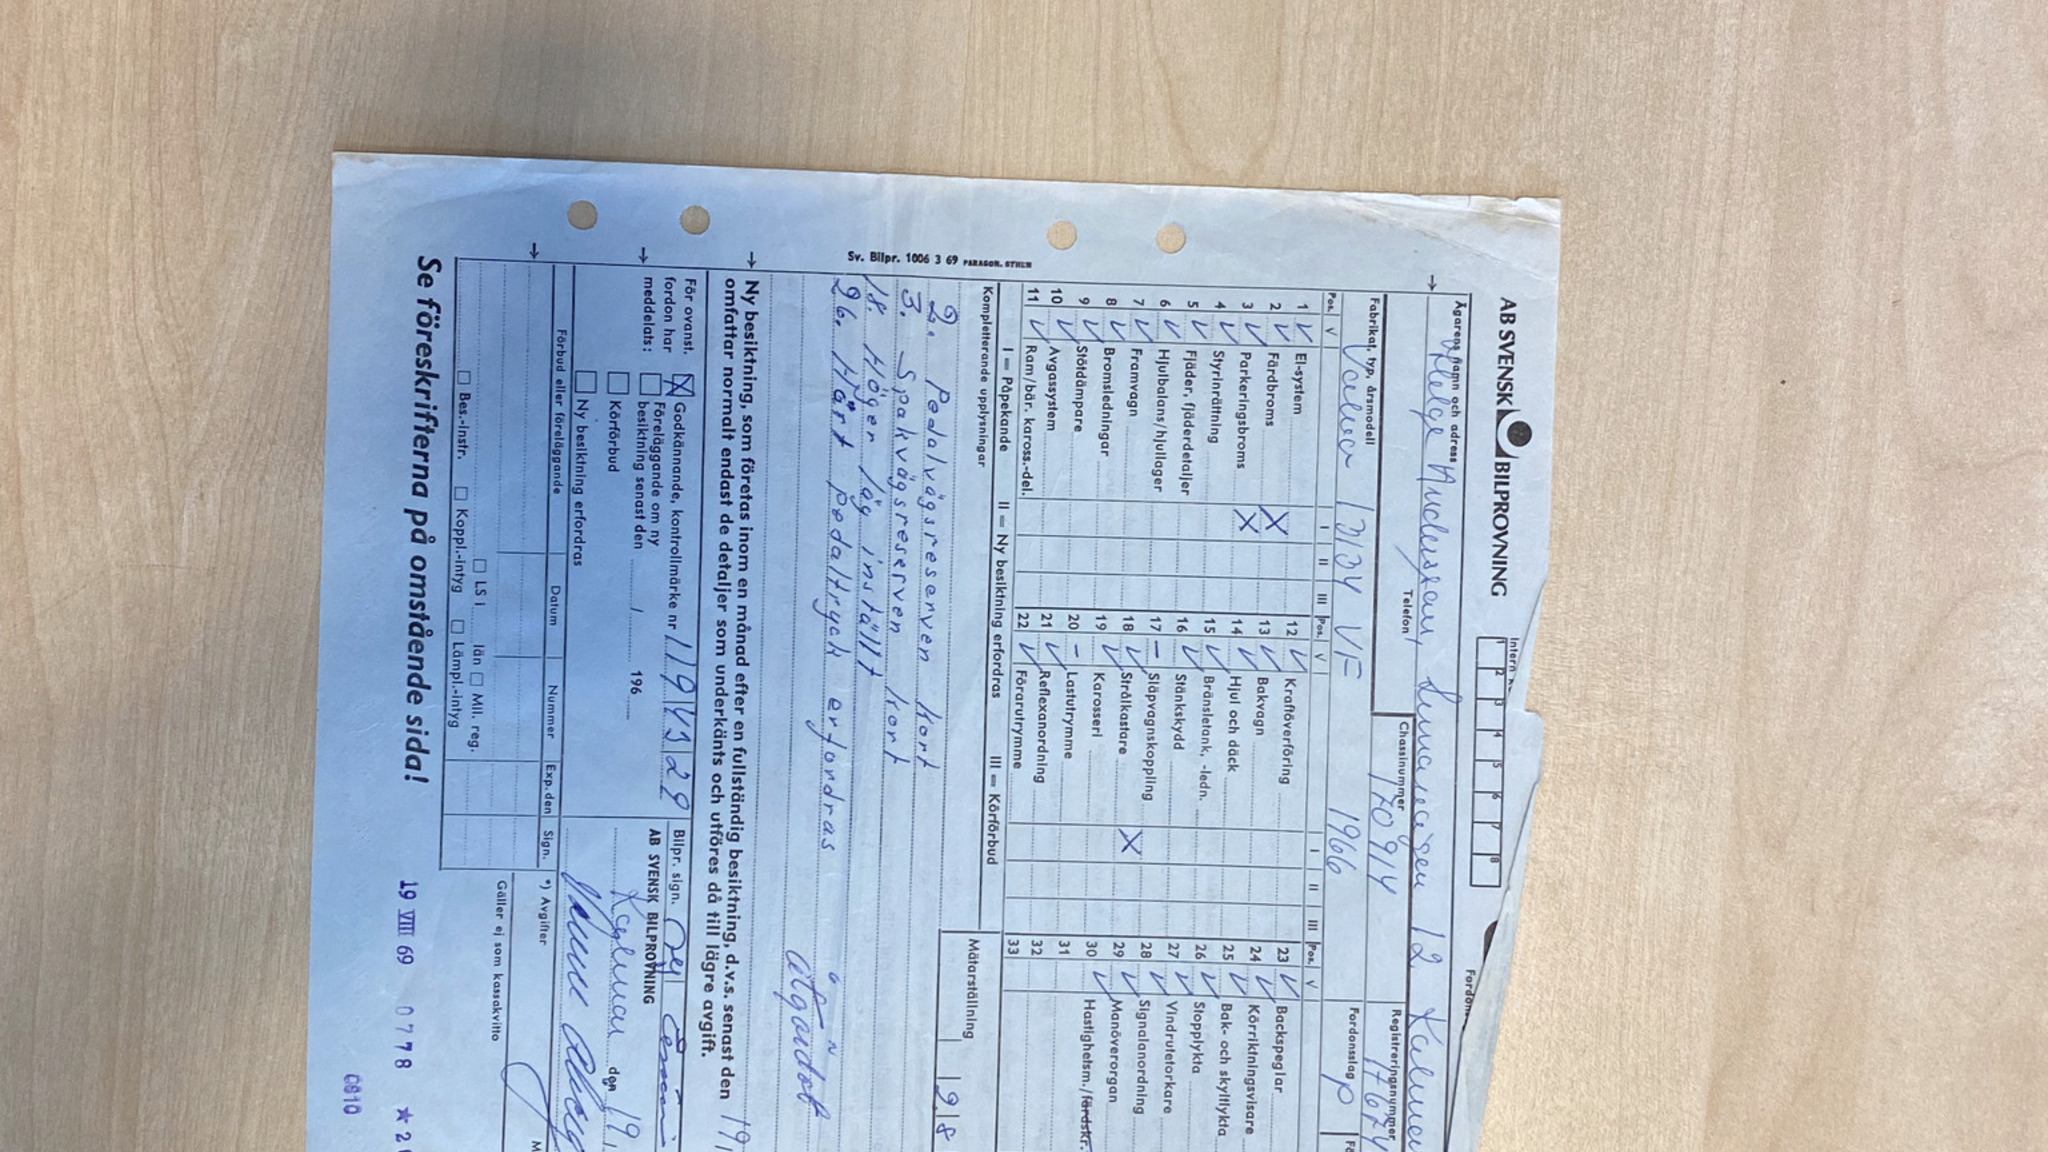 AB SVENSK BILPROVNING
Intern
1 2 3 4 5 6 7 8
Ägarens namn och adress
Telefon
Helge Andersson, 12 Kalmar
Fabrikat, typ, årsmodell
Chassinummer
Registreringsnummer
Volvo 13134 VF 1966
170914
Fordonsslag
P
Pos. V I II III Pos. V I II III Pos. V
1 V El-system
2 V Färdbroms X
3 V Parkeringsbroms X
4 V Styrinrättning
5 V Fjäder, fjäderdetaljer
6 V Hjulbalans/hjullager
7 V Framvagn
8 V Bromsledningar
9 V Stötdämpare
10 V Avgassystem
11 V Ram/bär. kaross.-del.
12 V Kraftöverföring
13 V Bakvagn
14 V Hjul och däck
15 V Bränsletank, -ledn.
16 V Stänkskydd
17 – Släpvagnskoppling
18 V Strålkastare X
19 V Karosseri
20 – Lastutrymme
21 V Reflexanordning
22 V Förarutrymme
23 V Backspeglar
24 V Körriktningsvisare
25 V Bak- och skyltlykta
26 V Stopplykta
27 V Vindrutetorkare
28 V Signalanordning
29 V Manöverorgan
30 V Hastighetsm./färdskr.
31
32
33
I = Påpekande II = Ny besiktning erfordras III = Körförbud
Kompletterande upplysningar
Mätarställning
2. Pedalvägsreserven kort
3. Spakvägsreserven kort
18. Höger låg inställt
26. Hårt pedaltryck erfordras
Ny besiktning, som företas inom en månad efter en fullständig besiktning, d.v.s. senast den
omfattar normalt endast de detaljer som underkänts och utföres då till lägre avgift.
För ovanst. fordon har meddelats:
X Godkännande, kontrollmärke nr
Föreläggande om ny besiktning senast den / 196
Körförbud
Ny besiktning erfordras
Bilpr. sign.
AB SVENSK BILPROVNING
Kalmar den 19
Förbud eller föreläggande Datum Nummer Exp. den Sign.
*) Avgifter
LS i län Mil. reg.
Bes.-Instr. Koppl.-intyg Lämpl.-intyg
Gäller ej som kassakvitto
Se föreskrifterna på omstående sida!
19 VIII 69 0778 ★
0810
Sv. Bilpr. 1006 3 69 PARAGON. STHLM